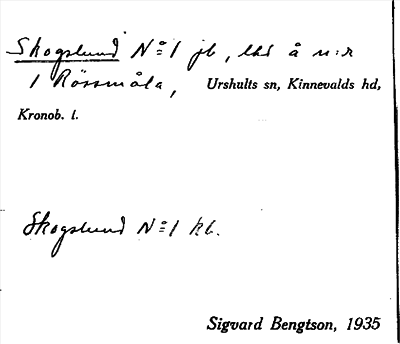 Skogslund Nº 1 jb, lht å n:r
1 Rössmåla, Urshults sn, Kinnevalds hd,
Kronob. l.
Skogslund Nº 1 kb.
Sigvard Bengtson, 1935